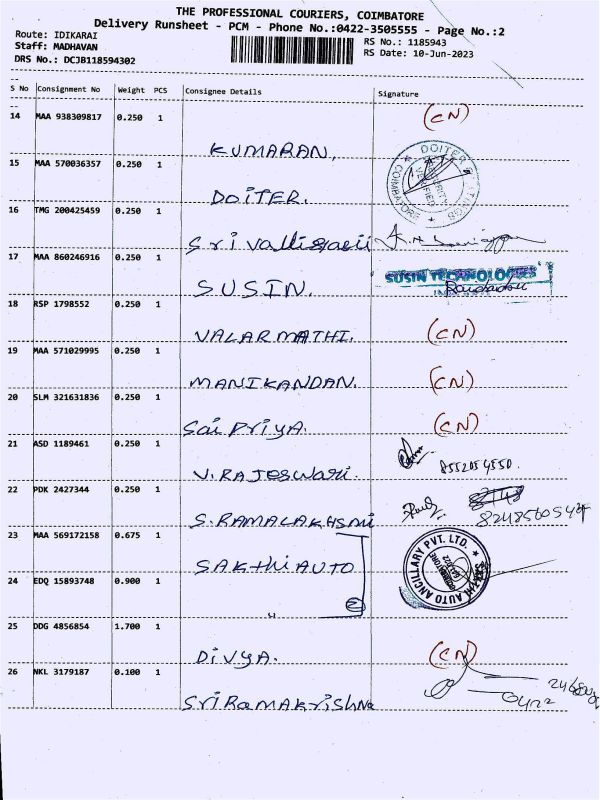 THE PROFESSIONAL COURIERS, COIMBATORE
Delivery Runsheet - PCM - Phone No.:0422-3505555 - Page No.:2
Route: IDIKARAI
RS No.: 1185943
Staff: MADHAVAN
RS Date: 10-Jun-2023
DRS No.: DCJB118594302
S No Consignment No Weight PCS Consignee Details Signature
14 MAA 938309817 0.250 1 (CN)
KUMARAN.
15 MAA 570036357 0.250 1 DOITER COIMBATORE
DOITER.
16 TMG 200425459 0.250 1
Srivalli
17 MAA 860246916 0.250 1 SUSIN TECHNOLOGIES
SUSIN.
18 RSP 1798552 0.250 1
VALARMATHI. (CN)
19 MAA 571029995 0.250 1
MANIKANDAN. (CN)
20 SLM 321631836 0.250 1
Sai Priya. (CN)
21 ASD 1189461 0.250 1
V.RAJESWARI. 8552054550.
22 PDK 2427344 0.250 1
S.RAMALAKHSMI
23 MAA 569172158 0.675 1
SAKTHI AUTO SAKTHI AUTO ANCILLARY PVT. LTD. COIMBATORE
24 EDQ 15893748 0.900 1
"
25 DDG 4856854 1.700 1
DIVYA. (CN)
26 NKL 3179187 0.100 1
Sri Ramakrishna